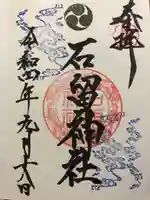 奉拝
石留神社
令和四年元月十六日